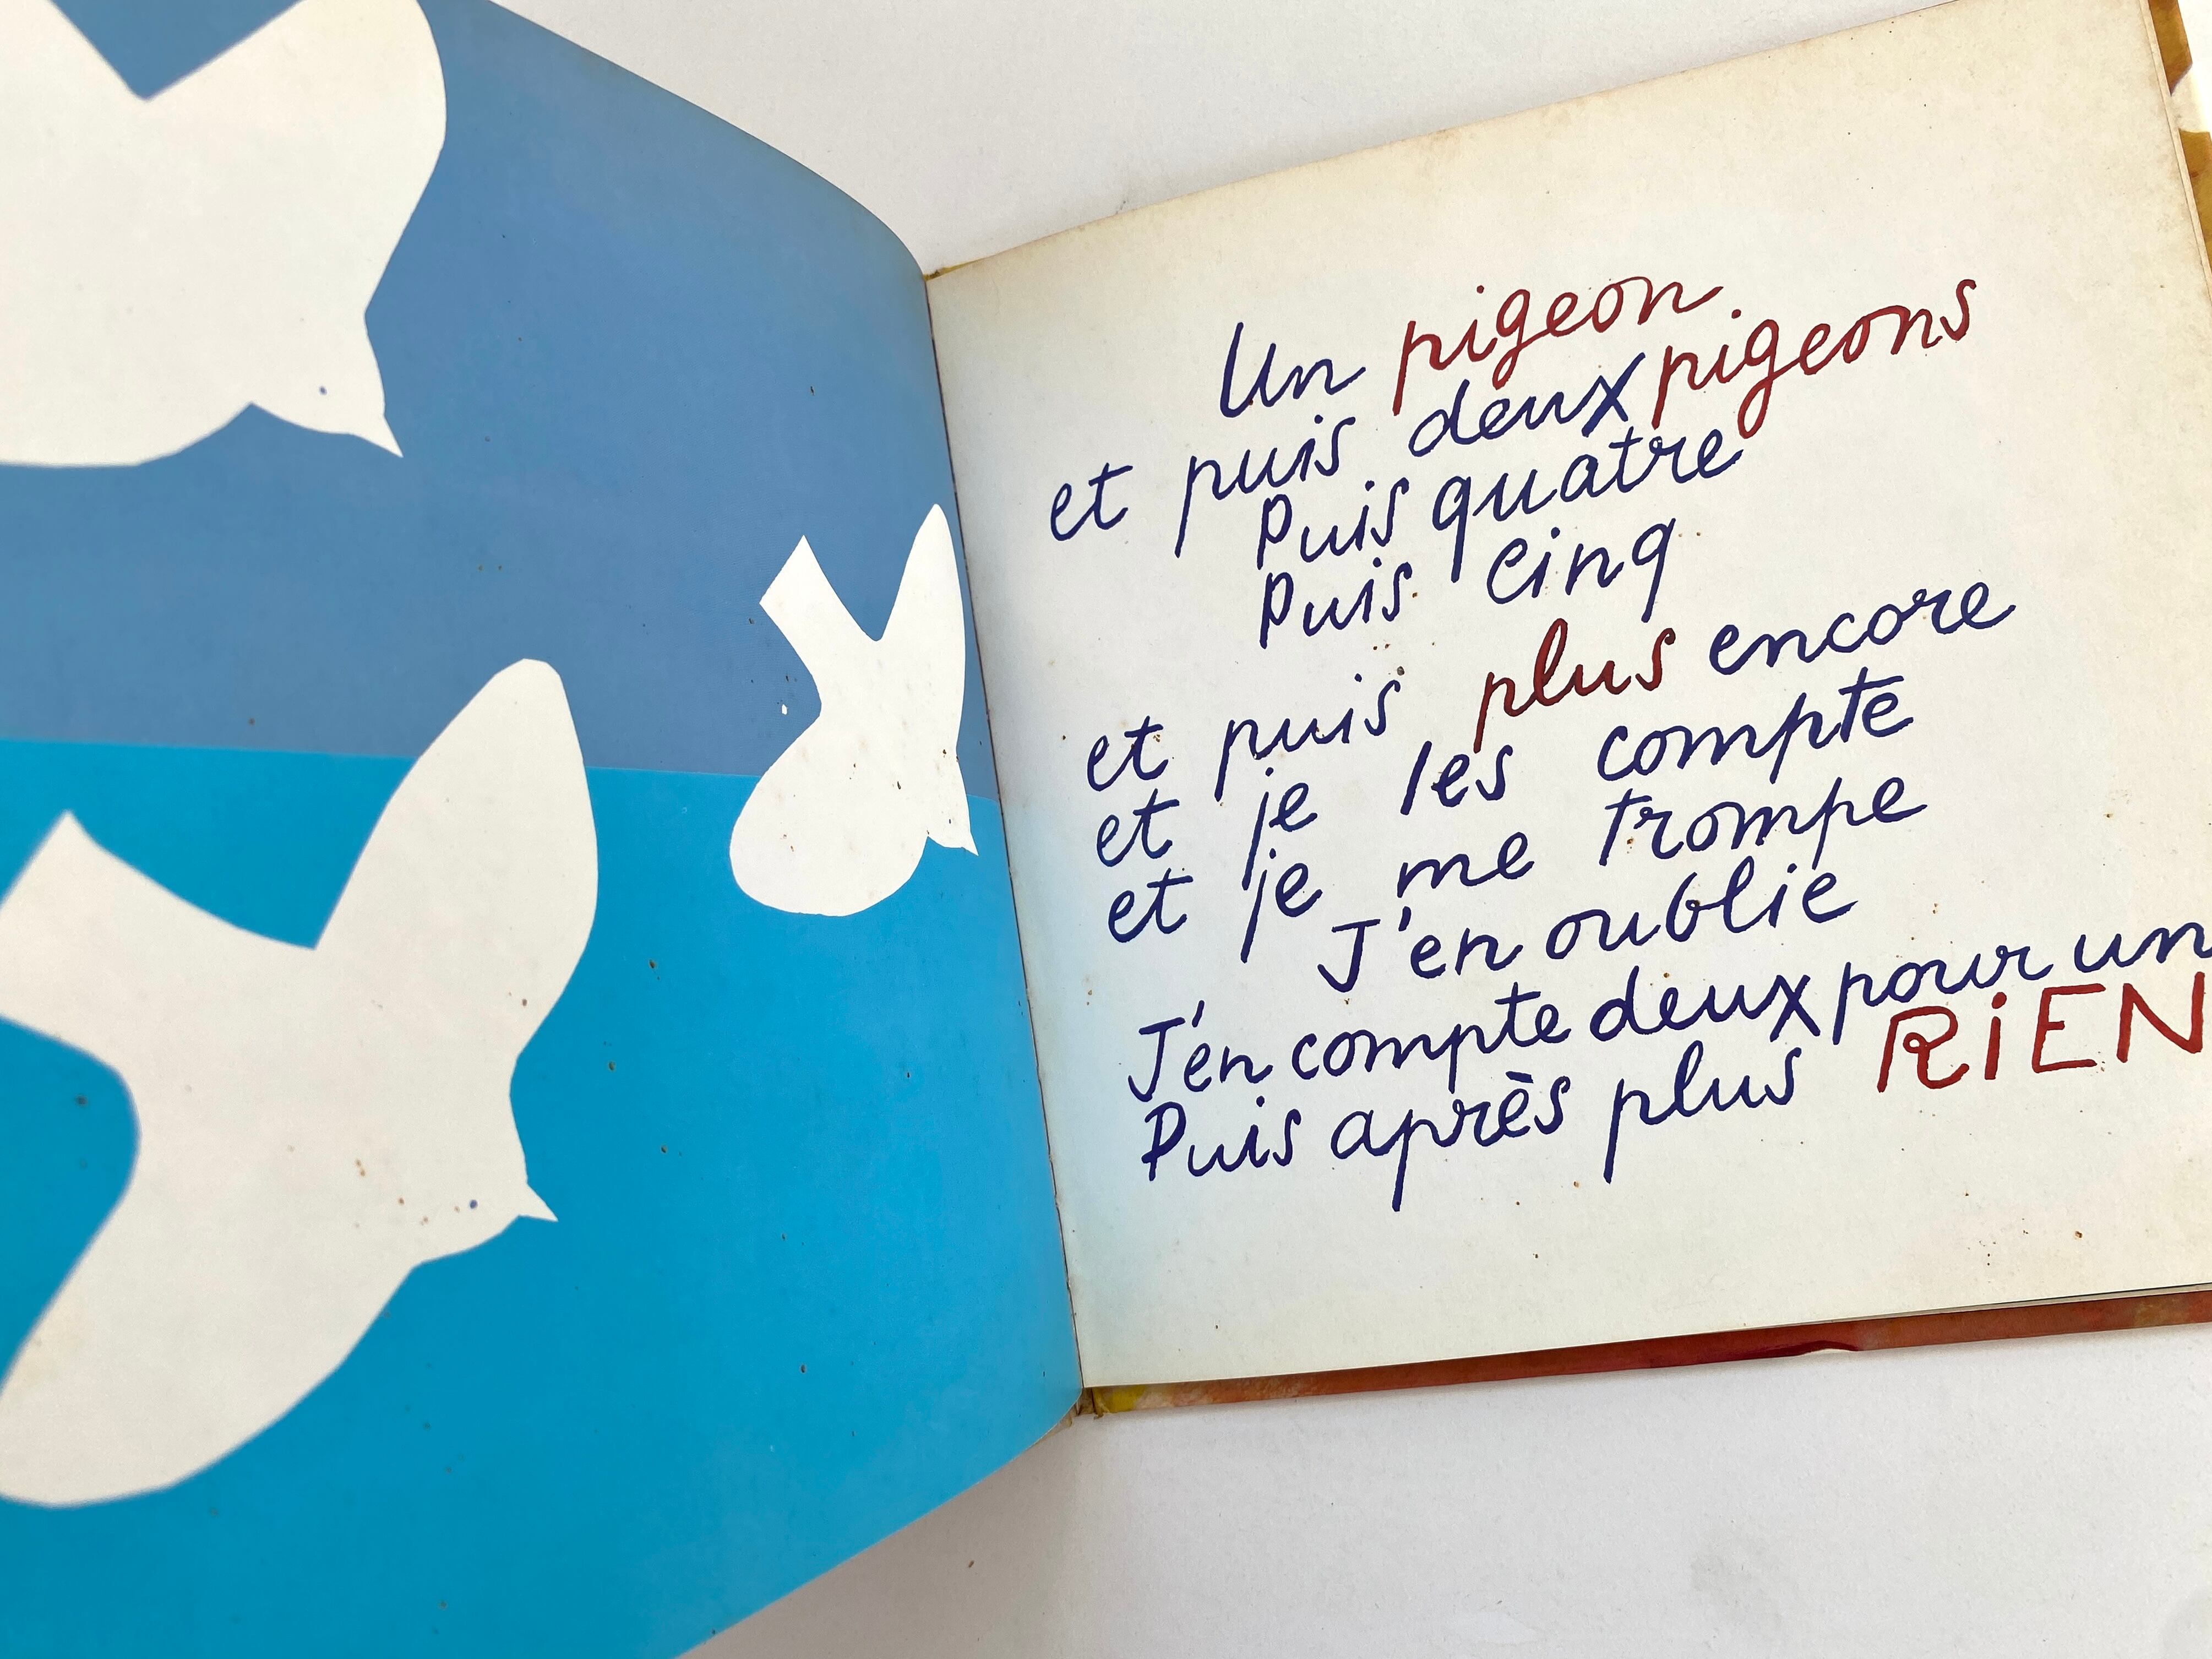 Un pigeon
et puis deux pigeons
Puis quatre
Puis cinq
et puis plus encore
et je les compte
et je me trompe
J'en oublie
J'en compte deux pour un
Puis après plus RiEN